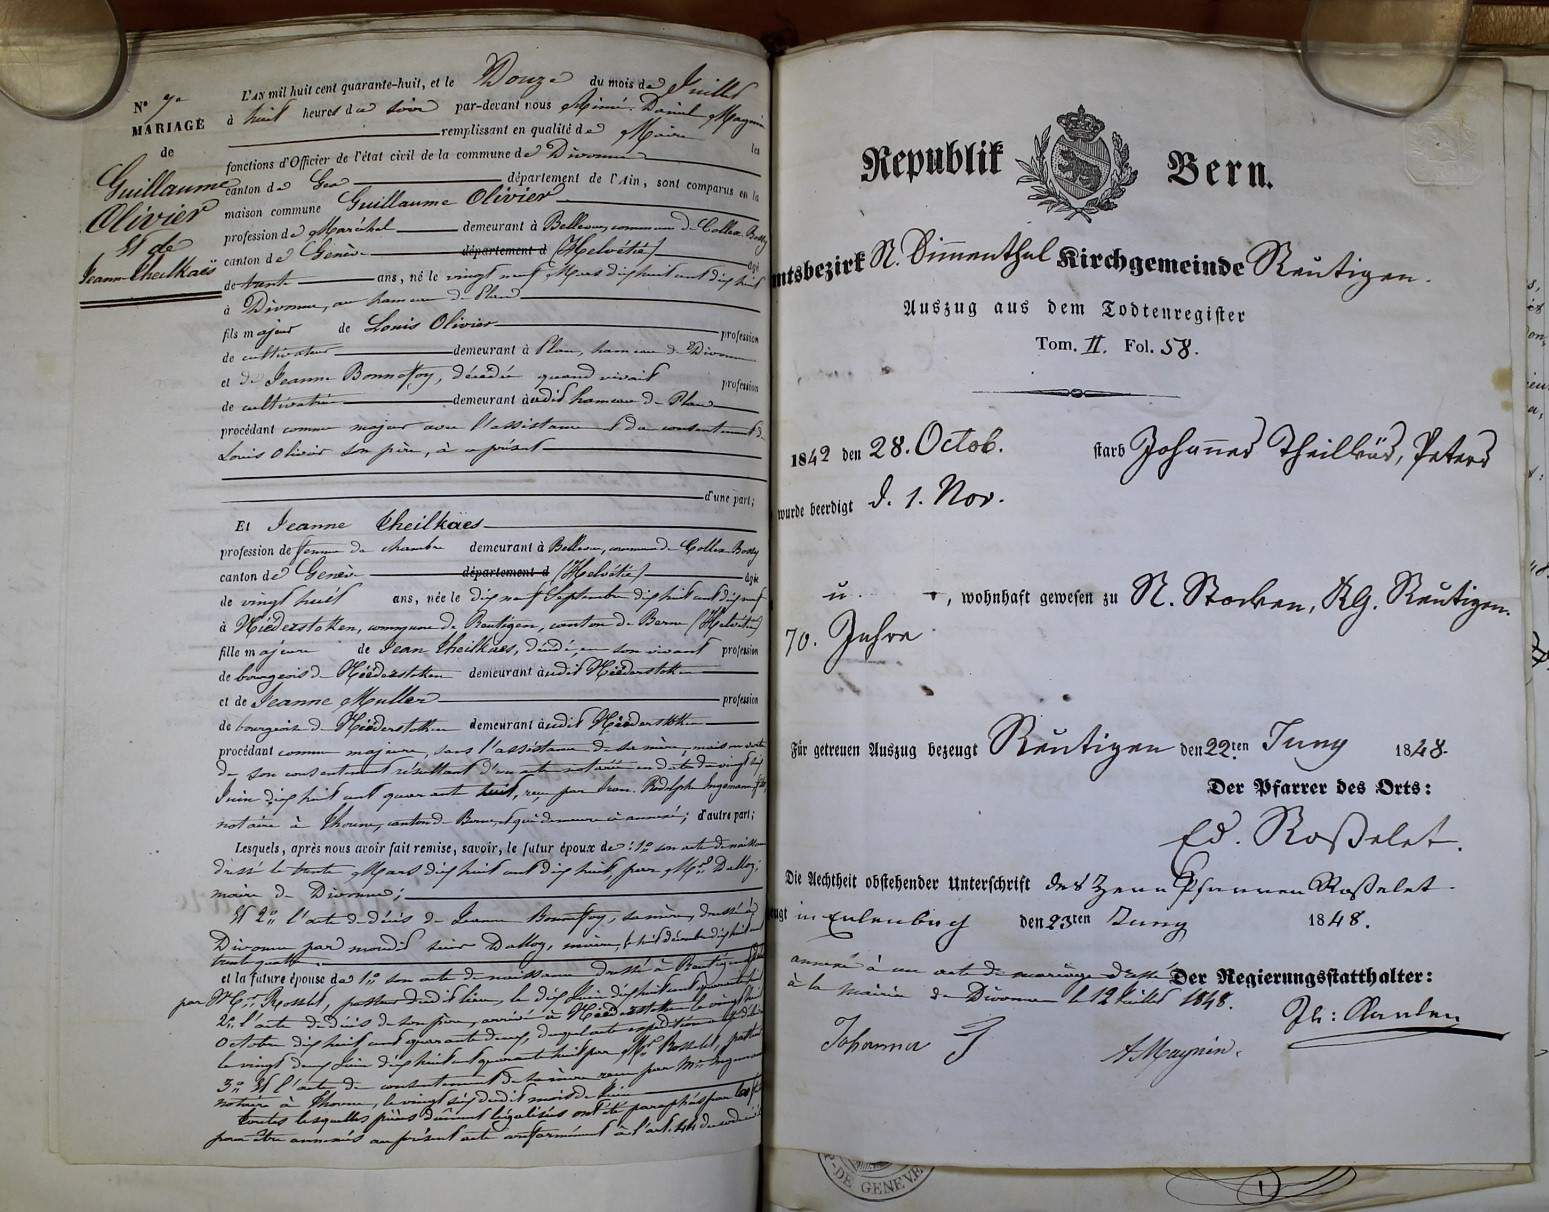 N° 7e
MARIAGE
de
Guillaume
Olivier
Et de
Jeanne Theilkaës
L'AN mil huit cent quarante-huit, et le Douze du mois de Juillet
à huit heures du soir par-devant nous Aimé Daniel Maynin
remplissant en qualité de Maire les
fonctions d'Officier de l'état civil de la commune de Divonne
canton de Gex département de l'Ain, sont comparus en la
maison commune Guillaume Olivier
profession de Maréchal demeurant à Bellevue, commune de Collex-Bossy
canton de Genève département d (Helvétie) âgé
de trente ans, né le vingt neuf Mars dix huit cent dix huit
à Divonne, au hameau de Plan
fils majeur de Louis Olivier profession
de cultivateur demeurant à Plan, hameau de Divonne
et de Jeanne Bonnefoy, décédée quand vivait profession
de cultivatrice demeurant audit hameau de Plan
procédant comme majeur avec l'assistance et du consentement de
Louis Olivier son père, à ce présent
d'une part;
Et Jeanne Theilkaes
profession de femme de chambre demeurant à Bellevue, commune de Collex-Bossy
canton de Genève département d (Helvétie) âgée
de vingt huit ans, née le dix neuf Septembre dix huit cent dix neuf
à Niederstoken, commune de Reutigen, canton de Berne (Helvétie)
fille majeure de Jean Theilkaes, décédé, en son vivant profession
de bourgeois de Niederstoken demeurant audit Niederstoken
et de Jeanne Muller profession
de bourgeoise de Niederstoken demeurant audit Niederstoken
procédant comme majeure, sans l'assistance de sa mère, mais en vertu
de son consentement résultant d'un acte notarié en date du vingt six
Juin dix huit cent quarante huit, reçu par Jean Rodolph
notaire à Thoune, canton de Berne, et qui demeure ci annexé; d'autre part;
Lesquels, après nous avoir fait remise, savoir, le futur époux de: 1° son acte de naissance
dressé le trente Mars dix huit cent dix huit, par Mr. Dalloz,
maire de Divonne;
Et 2° l'acte de décès de Jeanne Bonnefoy, sa mère, dressé à
Divonne par mondit sieur Dalloz, maire, le huit décembre dix huit cent
trente quatre
et la future épouse de 1° son acte de naissance dressé à Reutigen
par Rosselet, pasteur dudit lieu, le dix Juin dix huit cent quarante huit
2° l'acte de décès de son père, arrivé à Niederstoken le vingt huit
octobre dix huit cent quarante deux, duquel acte expédition a été délivrée
le vingt deux Juin dix huit cent quarante huit par Mr. Rosselet, pasteur
3° Et l'acte de consentement de sa mère reçu par Me
notaire à Thoune, le vingt six dudit mois de Juin
toutes lesquelles pièces dûment légalisées ont été paraphées par
pour être annexées au présent acte conformément à l'art. 44 du code civil
Republik Bern.
Amtsbezirk N. Simmenthal Kirchgemeinde Reutigen.
Auszug aus dem Todtenregister
Tom. II. Fol. 58.
1842 den 28. Octob. starb Johannes Theilkäs, Peters
wurde beerdigt d. 1. Nov.
u. , wohnhaft gewesen zu N. Stocken, KG. Reutigen.
70. Jahre
Für getreuen Auszug bezeugt Reutigen den 22.ten Juny 1848.
Der Pfarrer des Orts:
Ed. Roßelet.
Die Aechtheit obstehender Unterschrift des Herrn Pfarrers Roßelet
in den 23ten Juny 1848.
annexé à un acte de mariage dressé
Der Regierungsstatthalter:
à la mairie de Divonne le 12 Juillet 1848.
Johanna
A Maynin.
DE GENEVE